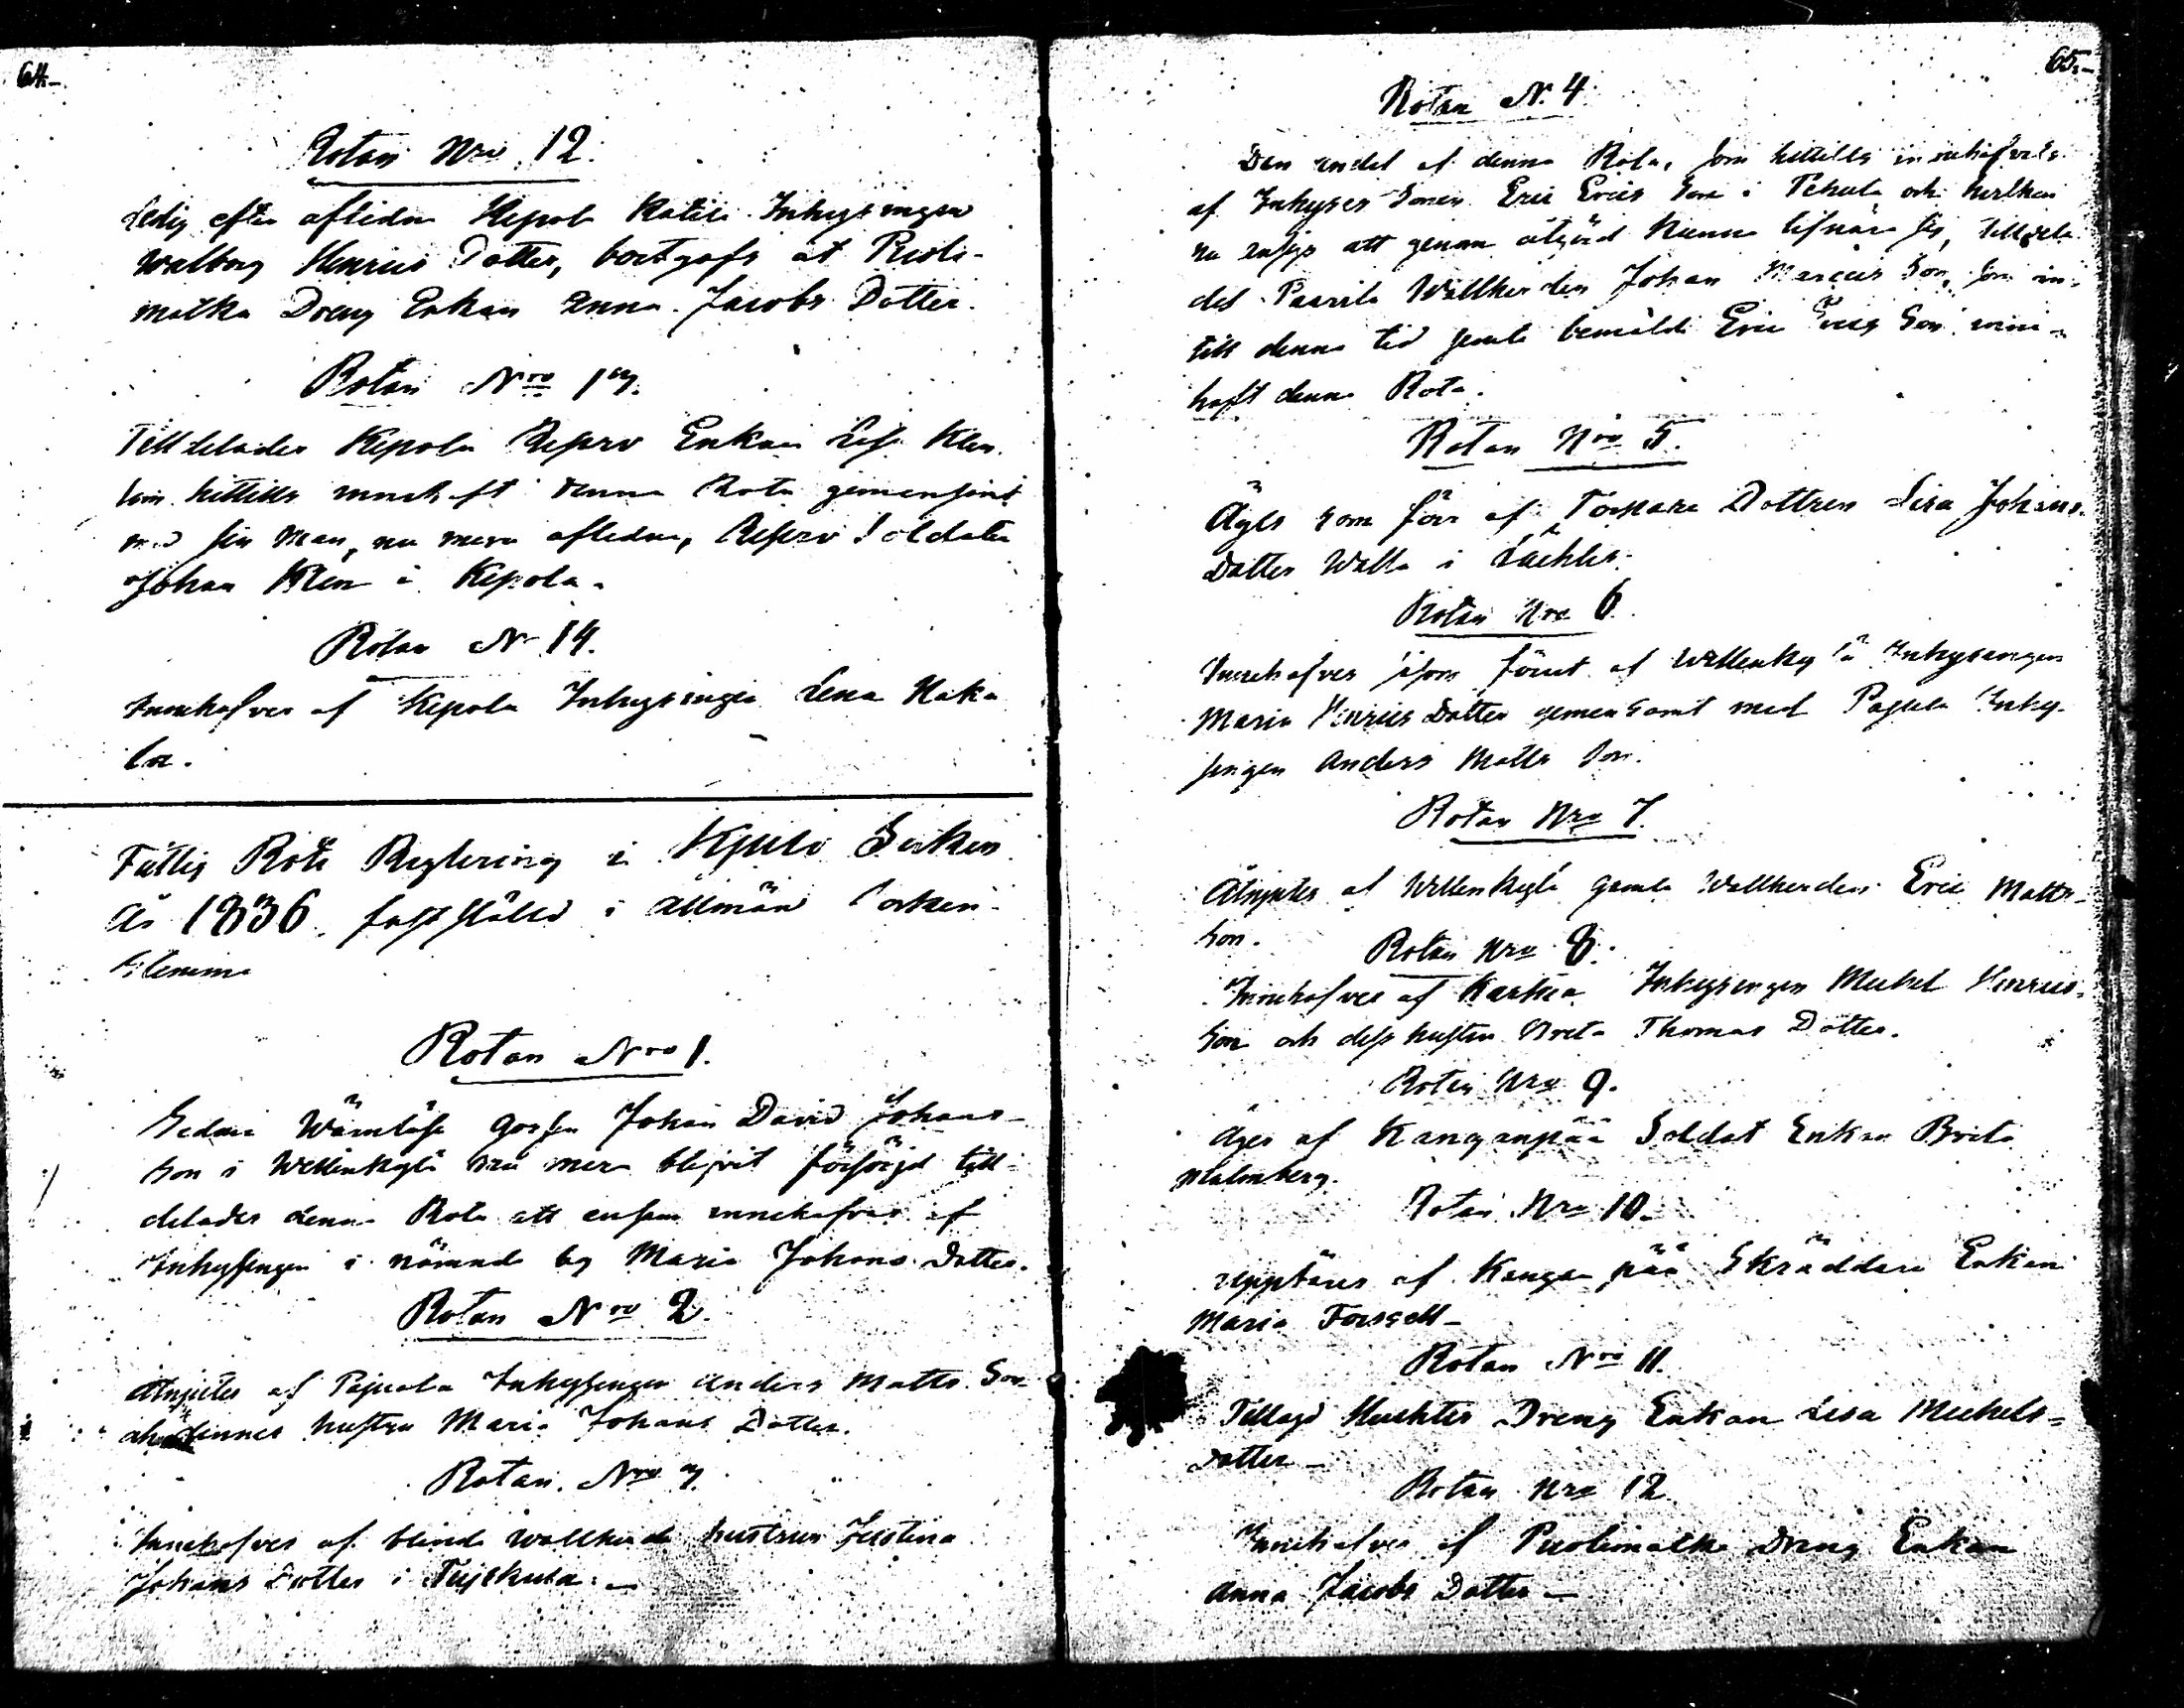 64.-
Rotan Nro 12.
Ledig efter aflidne Kepola Inhysingen
Walborg Henrics Dotter, bortgafs åt Puoli-
matka Dreng Enkan Anna Jacobs Dotter.
Rotan Nro 13.
Tilldelades Kepola Reserv Enkan Klen
som hittills innehaft denna Rota gemensamt
med sin Man, nu mera aflidne, Reserv Soldaten
Johan Klen i Kepola.
Rotan N 14.
Innehafves af Kepola Inhysingen Lena Kaka
la.
Fattig Rote Reglering i Kjulo Socken
År 1836. fastställd i allmän Socken-
stemma
Rotan Nro 1.
Sedan Wärnlösa gossen Johan David Johans-
son i Wellenkylä nu mera blifvit försörjd till-
delades denna Rota att ensam innehafvas af
Inhysingen i nämnde by Maria Johans Dotter.
Rotan Nro 2.
Åtnjutes af Pajula Inhysingen Anders Matts Son
och hustru Maria Johans Dotter.
Rotan Nro 3.
Innehafves af blinda Wallherde hustrun Justina
Johans Dotter i Tujskula.-
65.-
Rotan N. 4
Den andel af denna Rota, som hittills innehafvats
af Inhyses Sonen Eric Erics Son i Pehula och hvilken
nu anses att genom åtgärd kunna lifnära sig, tilldela-
des Paavila Wallherden Johan Marcus Son, som in-
till denna tid jemte bemälde Eric Erics Son inne-
haft denna Rota.
Rotan Nro 5.
Äges som förr af Torpare Dottren Lisa Johans
Dotter Walla i
Rotan Nro 6.
Innehafves såsom förut af Wellenkylä Inhysingen
Maria Henrics Dotter gemensamt med Pajula Inhy-
singen Anders Matts Son.
Rotan Nro 7.
Åtnjutes af Wellenkylä gamla Wallherden Eric Matts-
Son.
Rotan Nro 8.
Innehafves af Inhysingen Michel Henrics
Son och dess hustru Brita Thomas Dotter.
Rotan Nro 9.
Äges af Kanganpää Soldat Enkan Brita
Malmberg.
Rotan Nro 10.
uppbäres af Kanganpää Skräddare Enkan
Maria Forssell-
Rotan Nro 11.
Tillagd Huchtis Dreng Enkan Lisa Michels-
Dotter-
Rotan Nro 12
Innehafves af Puolimatka Dreng Enkan
Anna Jacobs Dotter-